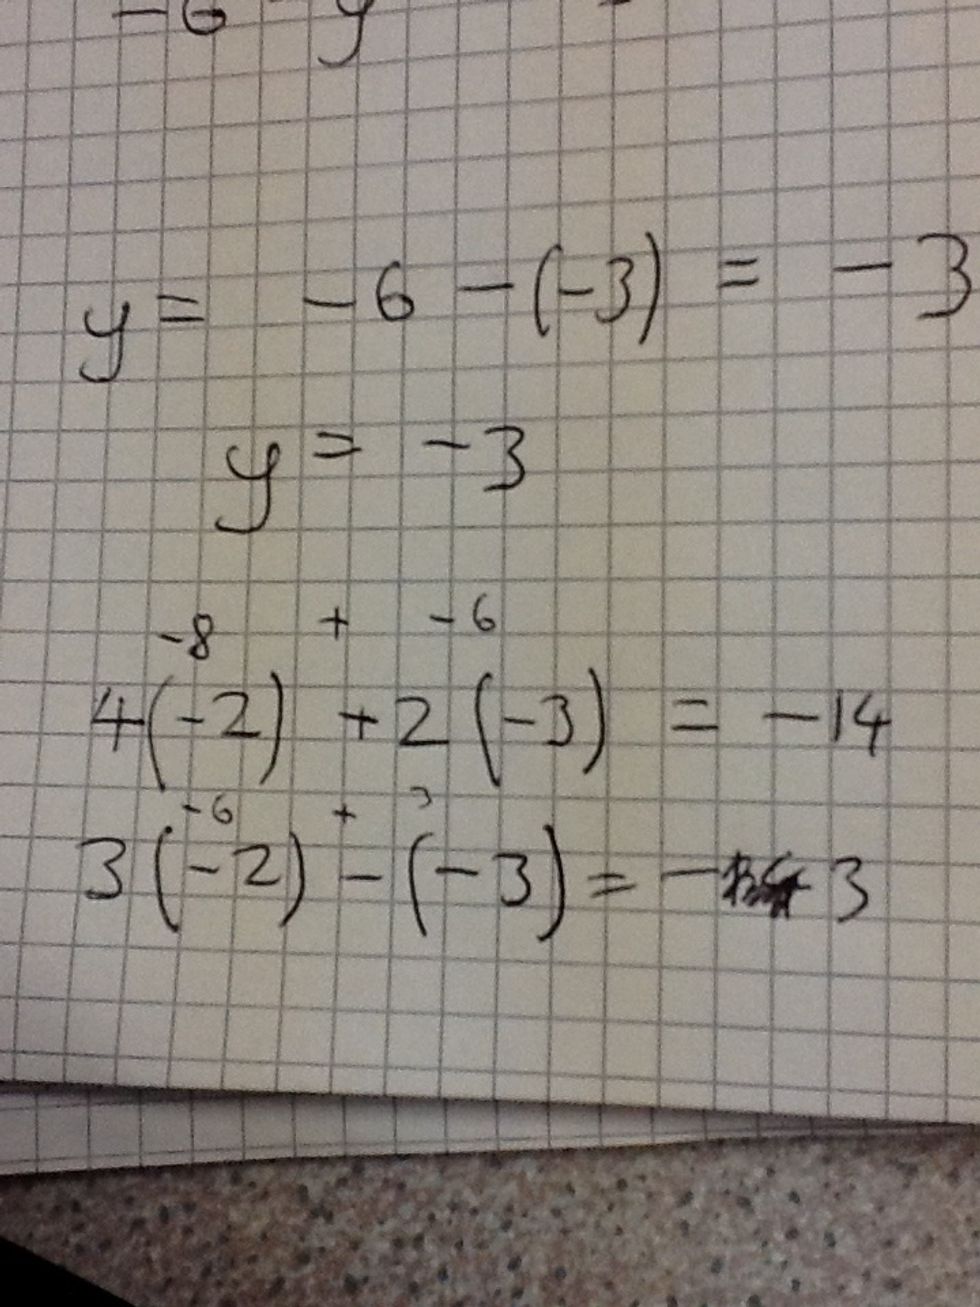 -6 - y
y = -6 - (-3) = -3
y = -3
-8 + -6
4(-2) + 2(-3) = -14
-6 + 3
3(-2) - (-3) = - 3